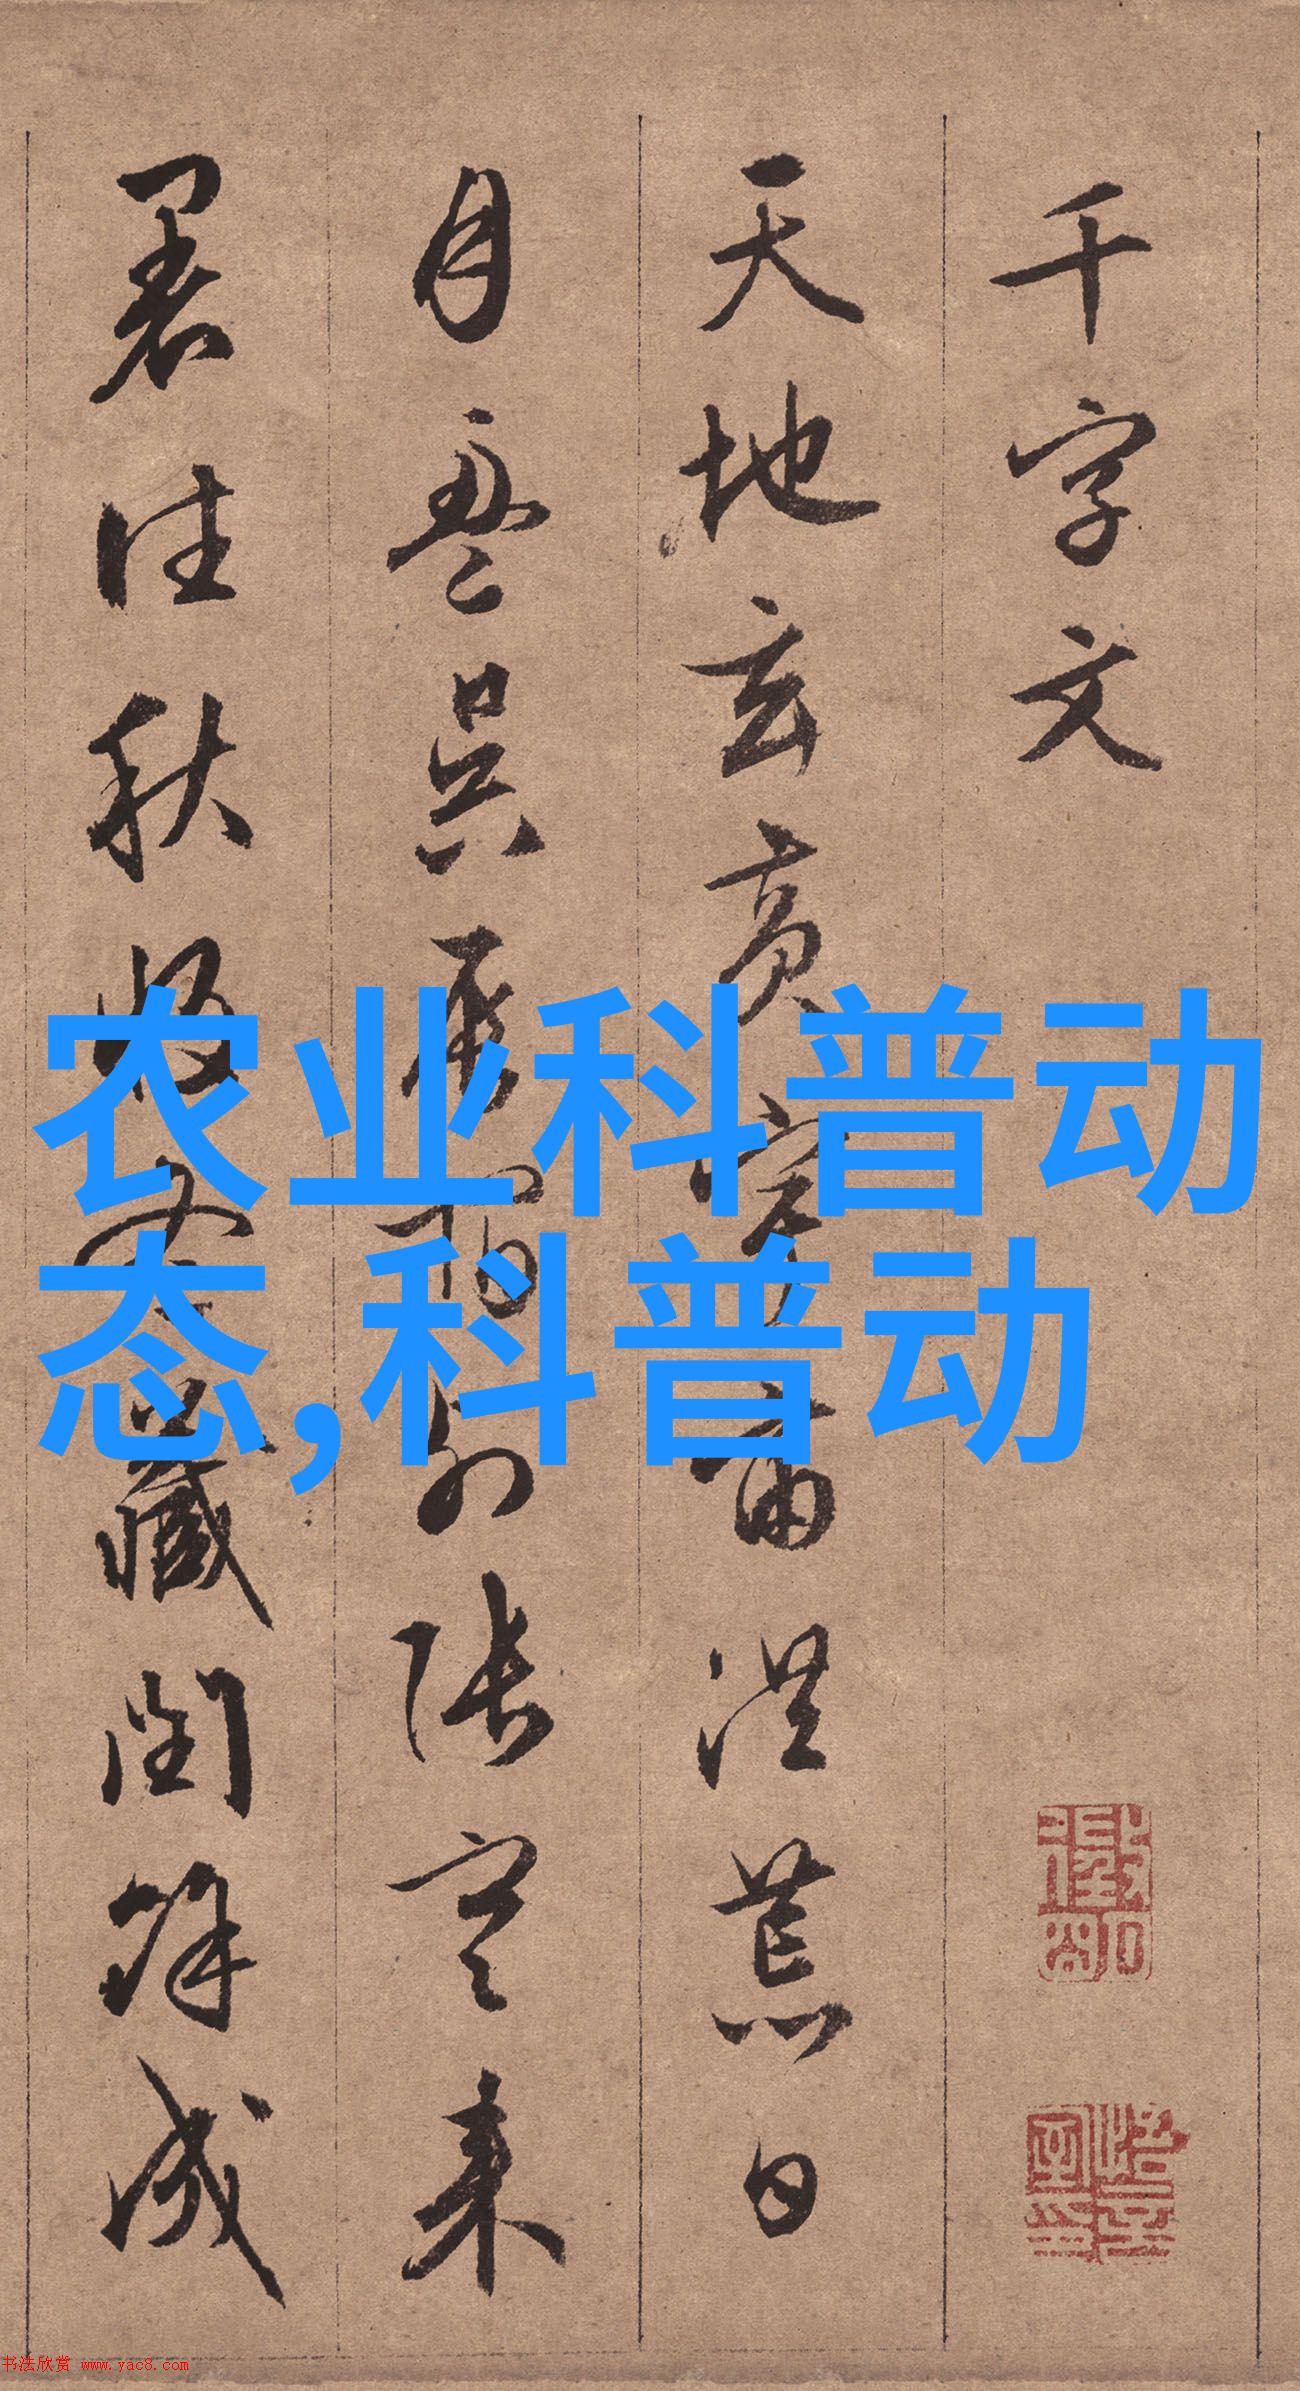 千字文
天地玄黄宇宙洪荒日
月盈昃辰宿列张寒来
暑往秋收冬藏闰余成
农业科普动
态,科普动
书法欣赏 www.yac8.com